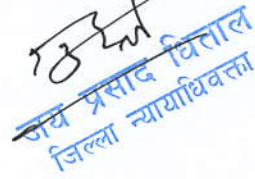 जय प्रसाद धिताल
जिल्ला न्यायाधिवक्ता